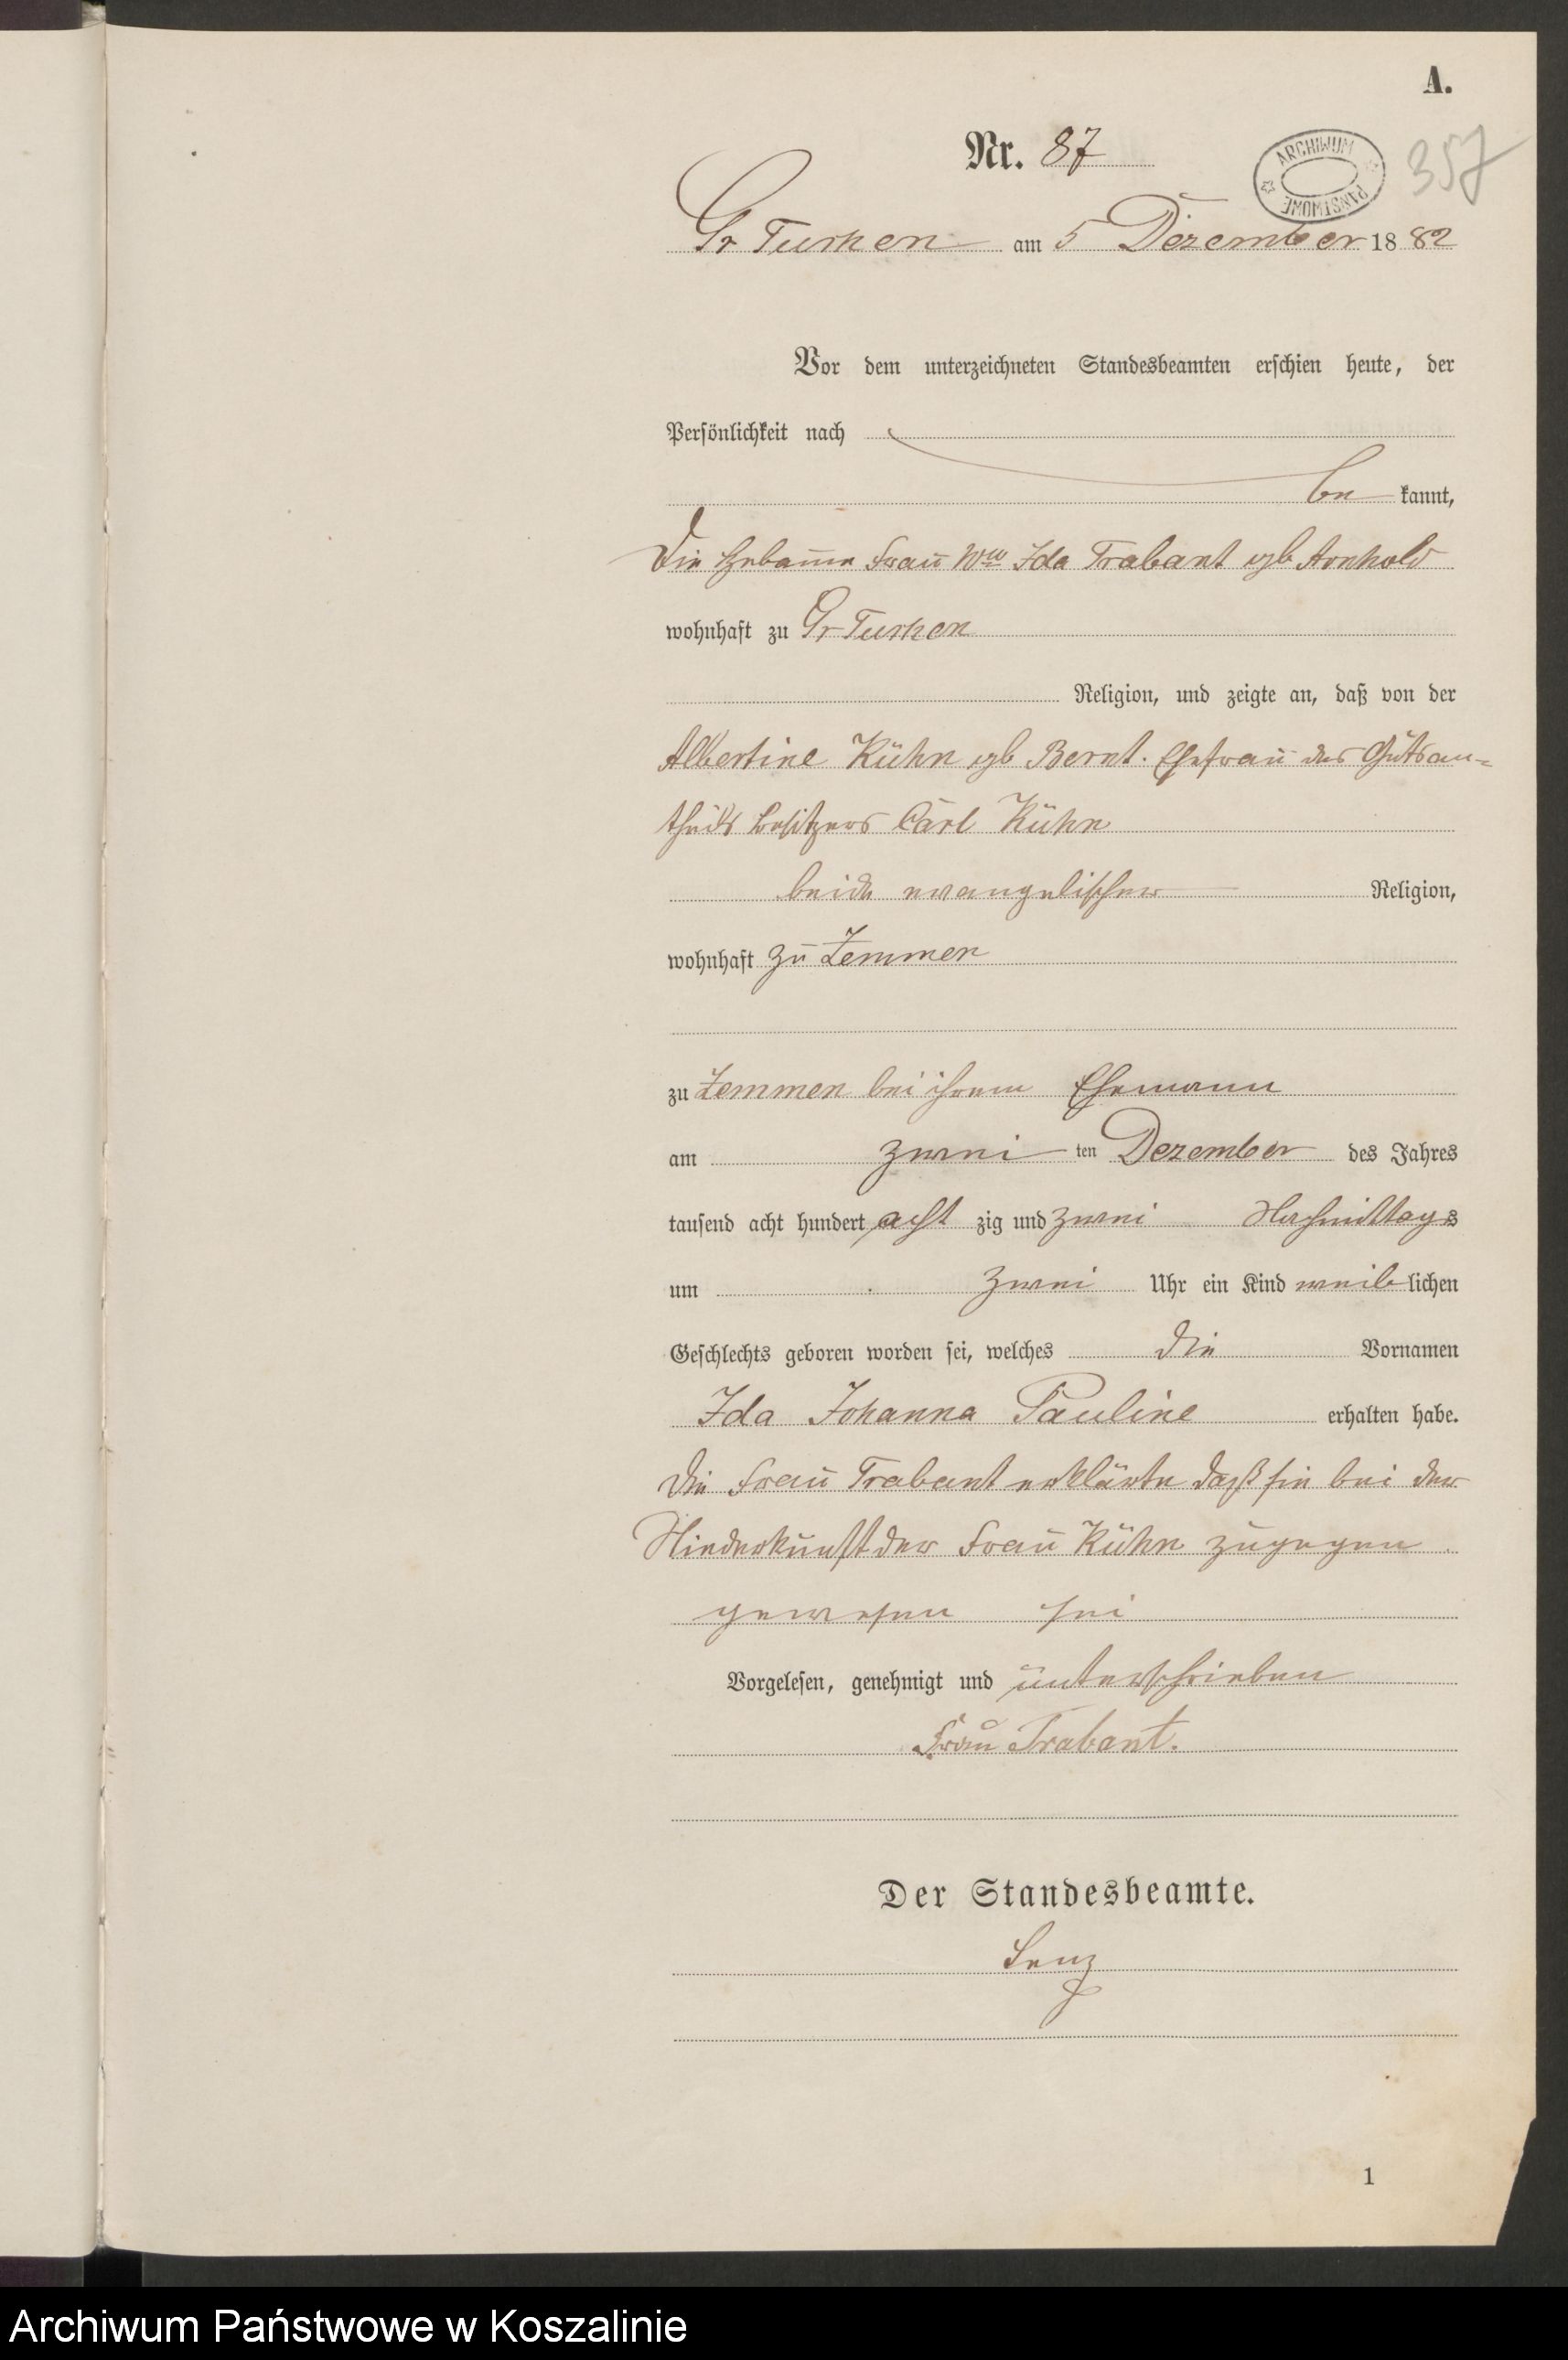 A.
Nr. 87
ARCHIWUM PAŃSTWOWE
357
Gr Tuchen am 5 Dezember 1882
Vor dem unterzeichneten Standesbeamten erschien heute, der
Persönlichkeit nach
be kannt,
Die Hebamme Frau Ww Ida Trabant geb Arnhold
wohnhaft zu Gr Tuchen
Religion, und zeigte an, daß von der
Albertine Kühn geb Bernt. Ehefrau des Gutsan=
theils besitzers Carl Kühn
beide evangelischer Religion,
wohnhaft zu Zemmen
zu Zemmen bei ihrem Ehemann
am zwei ten Dezember des Jahres
tausend acht hundert acht zig und zwei Nachmittags
um zwei Uhr ein Kind weiblichen
Geschlechts geboren worden sei, welches die Vornamen
Ida Johanna Pauline erhalten habe.
Die Frau Trabant erklärte daß sie bei der
Niederkunft der Frau Kühn zugegen
gewesen sei
Vorgelesen, genehmigt und unterschrieben
Frau Trabant.
Der Standesbeamte.
Lenz
1
Archiwum Państwowe w Koszalinie